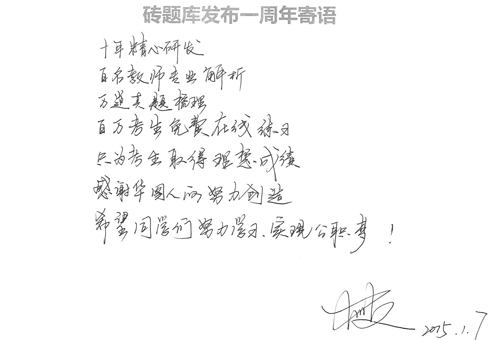 砖题库发布一周年寄语
十年精心研发
百名教师专业解析
万道真题梳理
百万考生免费在线练习
只为考生取得理想成绩
感谢华图人的努力创造
希望同学们努力学习、实现公职梦！
2015.1.7